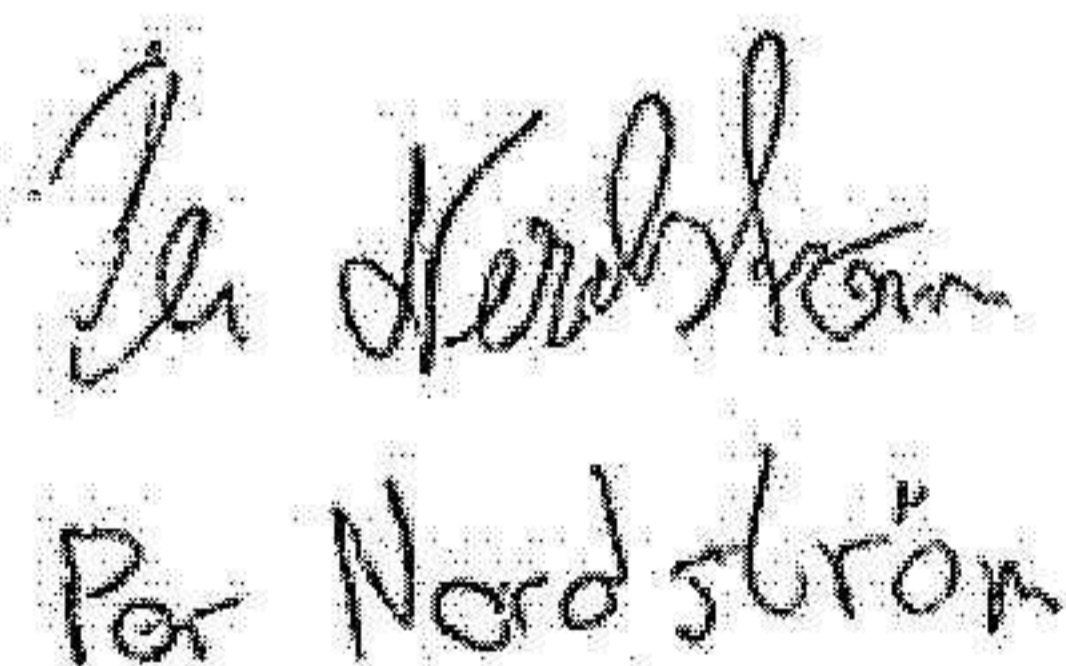 Per Nordström
Par Nordström